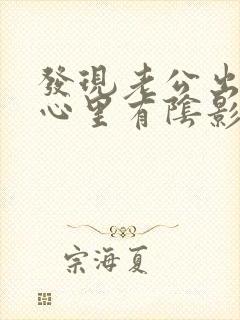 發現老公出
心里有陰影
宗海夏